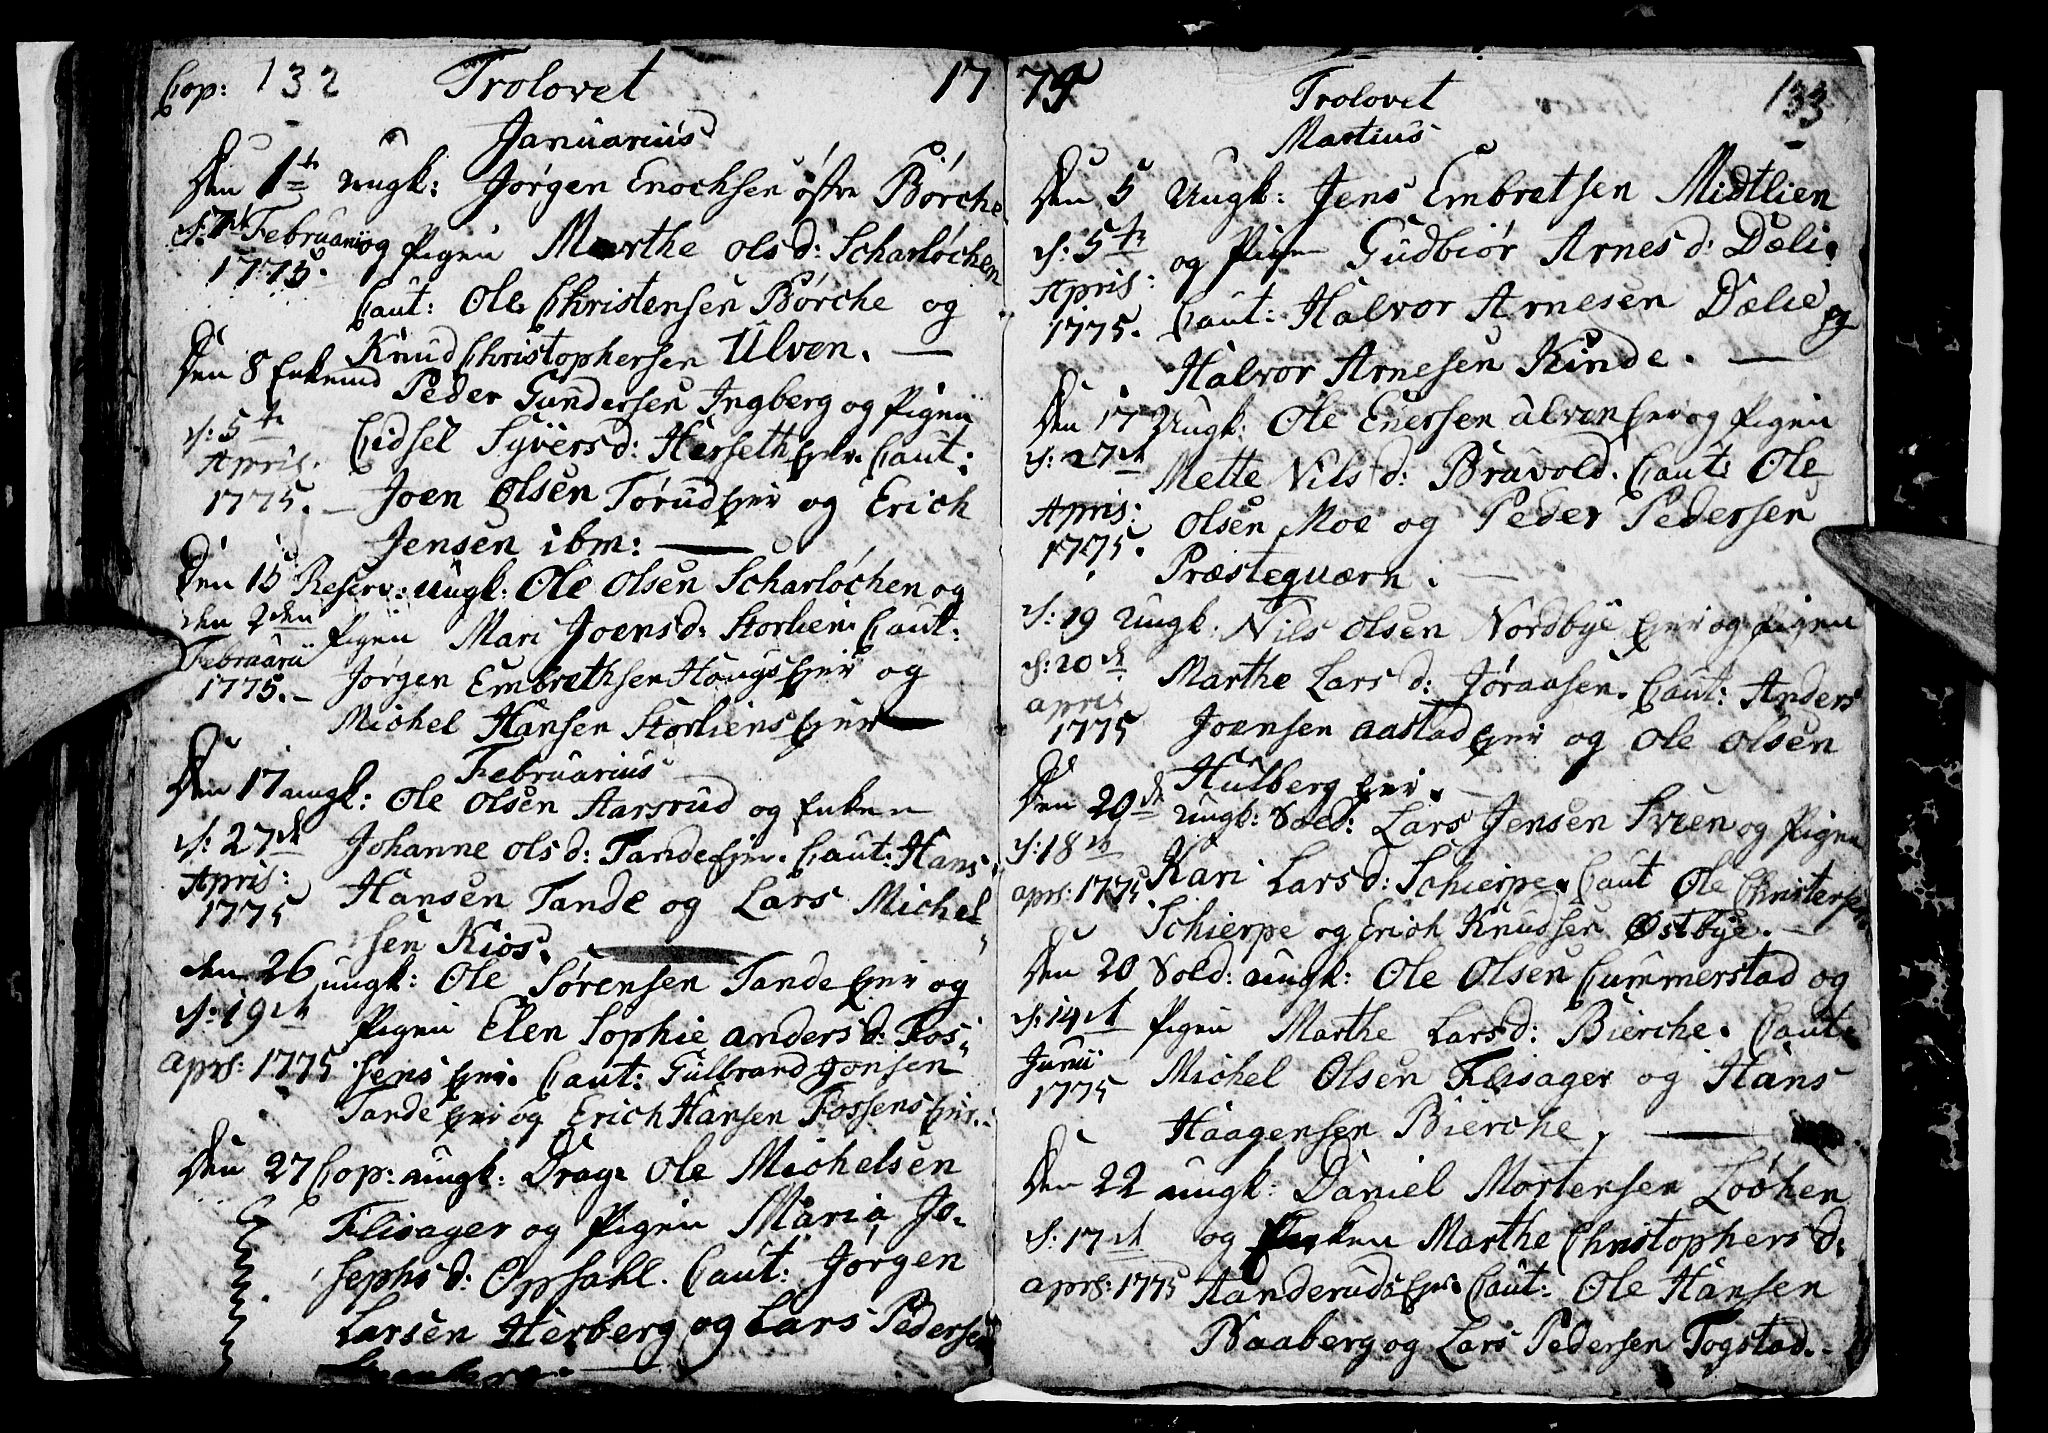 Cop: 132 Trolovet 17
Januarius
Den 1te ungk: Jørgen Enochsen østre Børche
d: 7de Februarii og Pigen Marthe Olsd: Scharløchen
1775. Caut: Ole Christensen Børche og
Knud Christophersen Ulven. —
Den 8 Enkemd Peder Gundersen Ingberg og Pigen
d: 5te Eidsel Syversd: Herseth Eyer. Caut:
Apris. Joen Olsen Tørud Eyer og Erich
1775. — Jensen ibm: —
Den 15 Reserv: ungk: Ole Olsen Scharløchen og
den 2den Pigen Mari Joensd: Storlien. Caut:
Februarii Jørgen Embrethsen Haugs Eyer og
1775. — Michel Hansen Storliens Eyer —
Februarius
Den 17 ungk: Ole Olsen Aarsrud og Enken
d: 27de Johanne Olsd: Tande Eyer. Caut: Hans
Apris: Hansen Tande og Lars Michel-
1775 sen Kios. —
den 26 ungk: Ole Sørensen Tande Eyer og
d: 19de Pigen Elen Sophie Andersd: Fos-
aprs: 1775 sens Eyer. Caut: Gulbrand Jonsen
Tande Eyer og Erich Hansen Fossens Eyer.
Den 27 Cop: ungk: Drag: Ole Michelsen
Flisager og Pigen Maria Jo-
sephsd: Opsahl. Caut: Jørgen
Larsen Herberg og Lars Pedersen
75 Trolovet 133
Martius
Den 5 Ungk: Jens Embretsen Midtlien
d: 5te og Pigen Gudbiør Arnesd: Dæli.
Apris: Caut: Halvor Arnesen Dælie og
1775. Halvor Arnesen Kinde. —
Den 17 Ungk: Ole Enersen Ulven Eyer og Pigen
d: 27de Mette Nilsd: Bravold. Caut: Ole
Apris: Olsen Moe og Peder Pedersen
1775. Præsteqværn. —
d: 19 Ungk: Nils Olsen Nordbye Eyer og Pigen
d: 20de Marthe Larsd: Jøraasen. Caut: Anders
apris Joensen Aastad Eyer og Ole Olsen
1775 Hulberg Eyer. —
Den 20de ungk: Sold: Lars Jensen Svien og Pigen
d: 18de Kari Larsd: Schierpe. Caut Ole Christensen
aprs: 1775. Schierpe og Erich Knudsen Østbye. —
Den 20 Sold: ungk: Ole Olsen Cummerstad og
d: 14de Pigen Marthe Larsd: Bierche. Caut:
Junii Michel Olsen Flisager og Hans
1775 Haagensen Bierche. —
Den 22 ungk: Daniel Mortensen Løchen
d: 17de og Enken Marthe Christophersd:
aprs: 1775 Aanderuds Eyer. Caut: Ole Hansen
Baaberg og Lars Pedersen Togstad. —